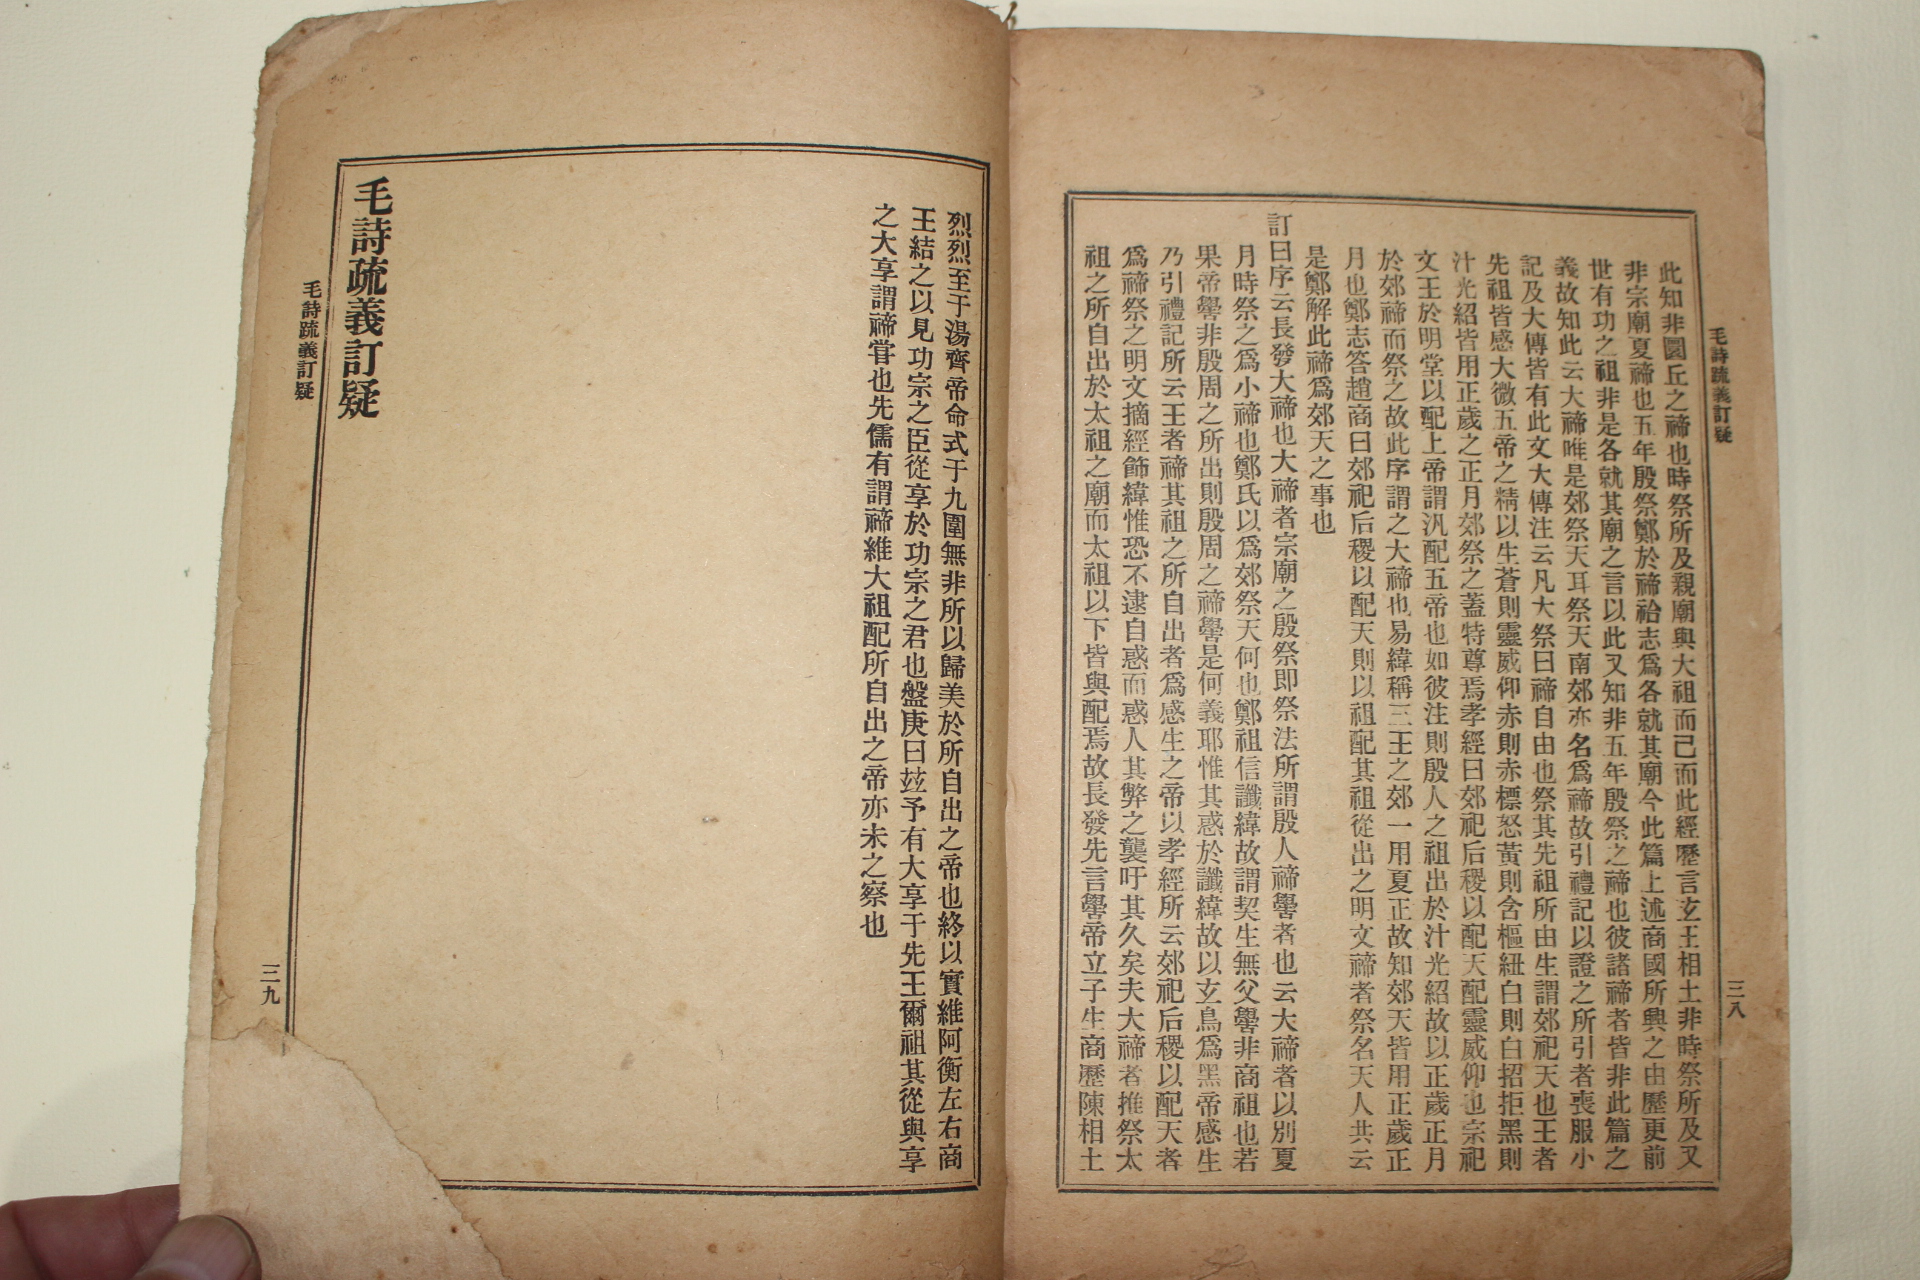 毛詩疏義訂疑
三八
此知非圜丘之禘也時祭所及親廟與大祖而已而此經歷言玄王相土非時祭所及又
非宗廟夏禘也五年殷祭鄭於禘祫志爲各就其廟今此篇上述商國所興之由歷更前
世有功之祖非是各就其廟之言以此又知非五年殷祭之禘也彼諸禘者皆非此篇之
義故知此云大禘唯是郊祭天耳祭天南郊亦名爲禘故引禮記以證之所引者喪服小
記及大傳皆有此文大傳注云凡大祭曰禘自由也祭其先祖所由生謂郊祀天也王者
先祖皆感大微五帝之精以生蒼則靈威仰赤則赤標怒黃則含樞紐白則白招拒黑則
汁光紀皆用正歲之正月郊祭之蓋特尊焉孝經曰郊祀后稷以配天配靈威仰也宗祀
文王於明堂以配上帝謂汎配五帝也如彼注則殷人之祖出於汁光紹故以正歲正月
於郊禘而祭之故此序謂之大禘也易緯稱三王之郊一用夏正故知郊天皆用正歲正
月也鄭志答趙商曰郊祀后稷以配天則以祖配其祖從出之明文禘者祭名天人共云
是鄭解此禘爲郊天之事也
訂曰序云長發大禘也大禘者宗廟之殷祭即祭法所謂殷人禘嚳者也云大禘者以別夏
月時祭之爲小禘也鄭氏以爲郊祭天何也鄭祖信讖緯故謂契生無父嚳非商祖也若
果帝嚳非殷周之所出則殷周之禘嚳是何義耶惟其惑於讖緯故以玄鳥爲黑帝感生
乃引禮記所云王者禘其祖之所自出者爲感生之帝以孝經所云郊祀后稷以配天者
爲禘祭之明文摘經飾緯惟恐不逮自惑而惑人其弊之襲吁其久矣夫大禘者推祭太
祖之所自出於太祖之廟而太祖以下皆與配焉故長發先言嚳帝立子生商歷陳相土
烈烈至于湯齊帝命式于九圍無非所以歸美於所自出之帝也終以實維阿衡左右商
王結之以見功宗之臣從享於功宗之君也盤庚曰玆予有大享于先王爾祖其從與享
之大享謂禘甞也先儒有謂禘維大祖配所自出之帝亦未之察也
毛詩疏義訂疑
毛詩疏義訂疑
三九